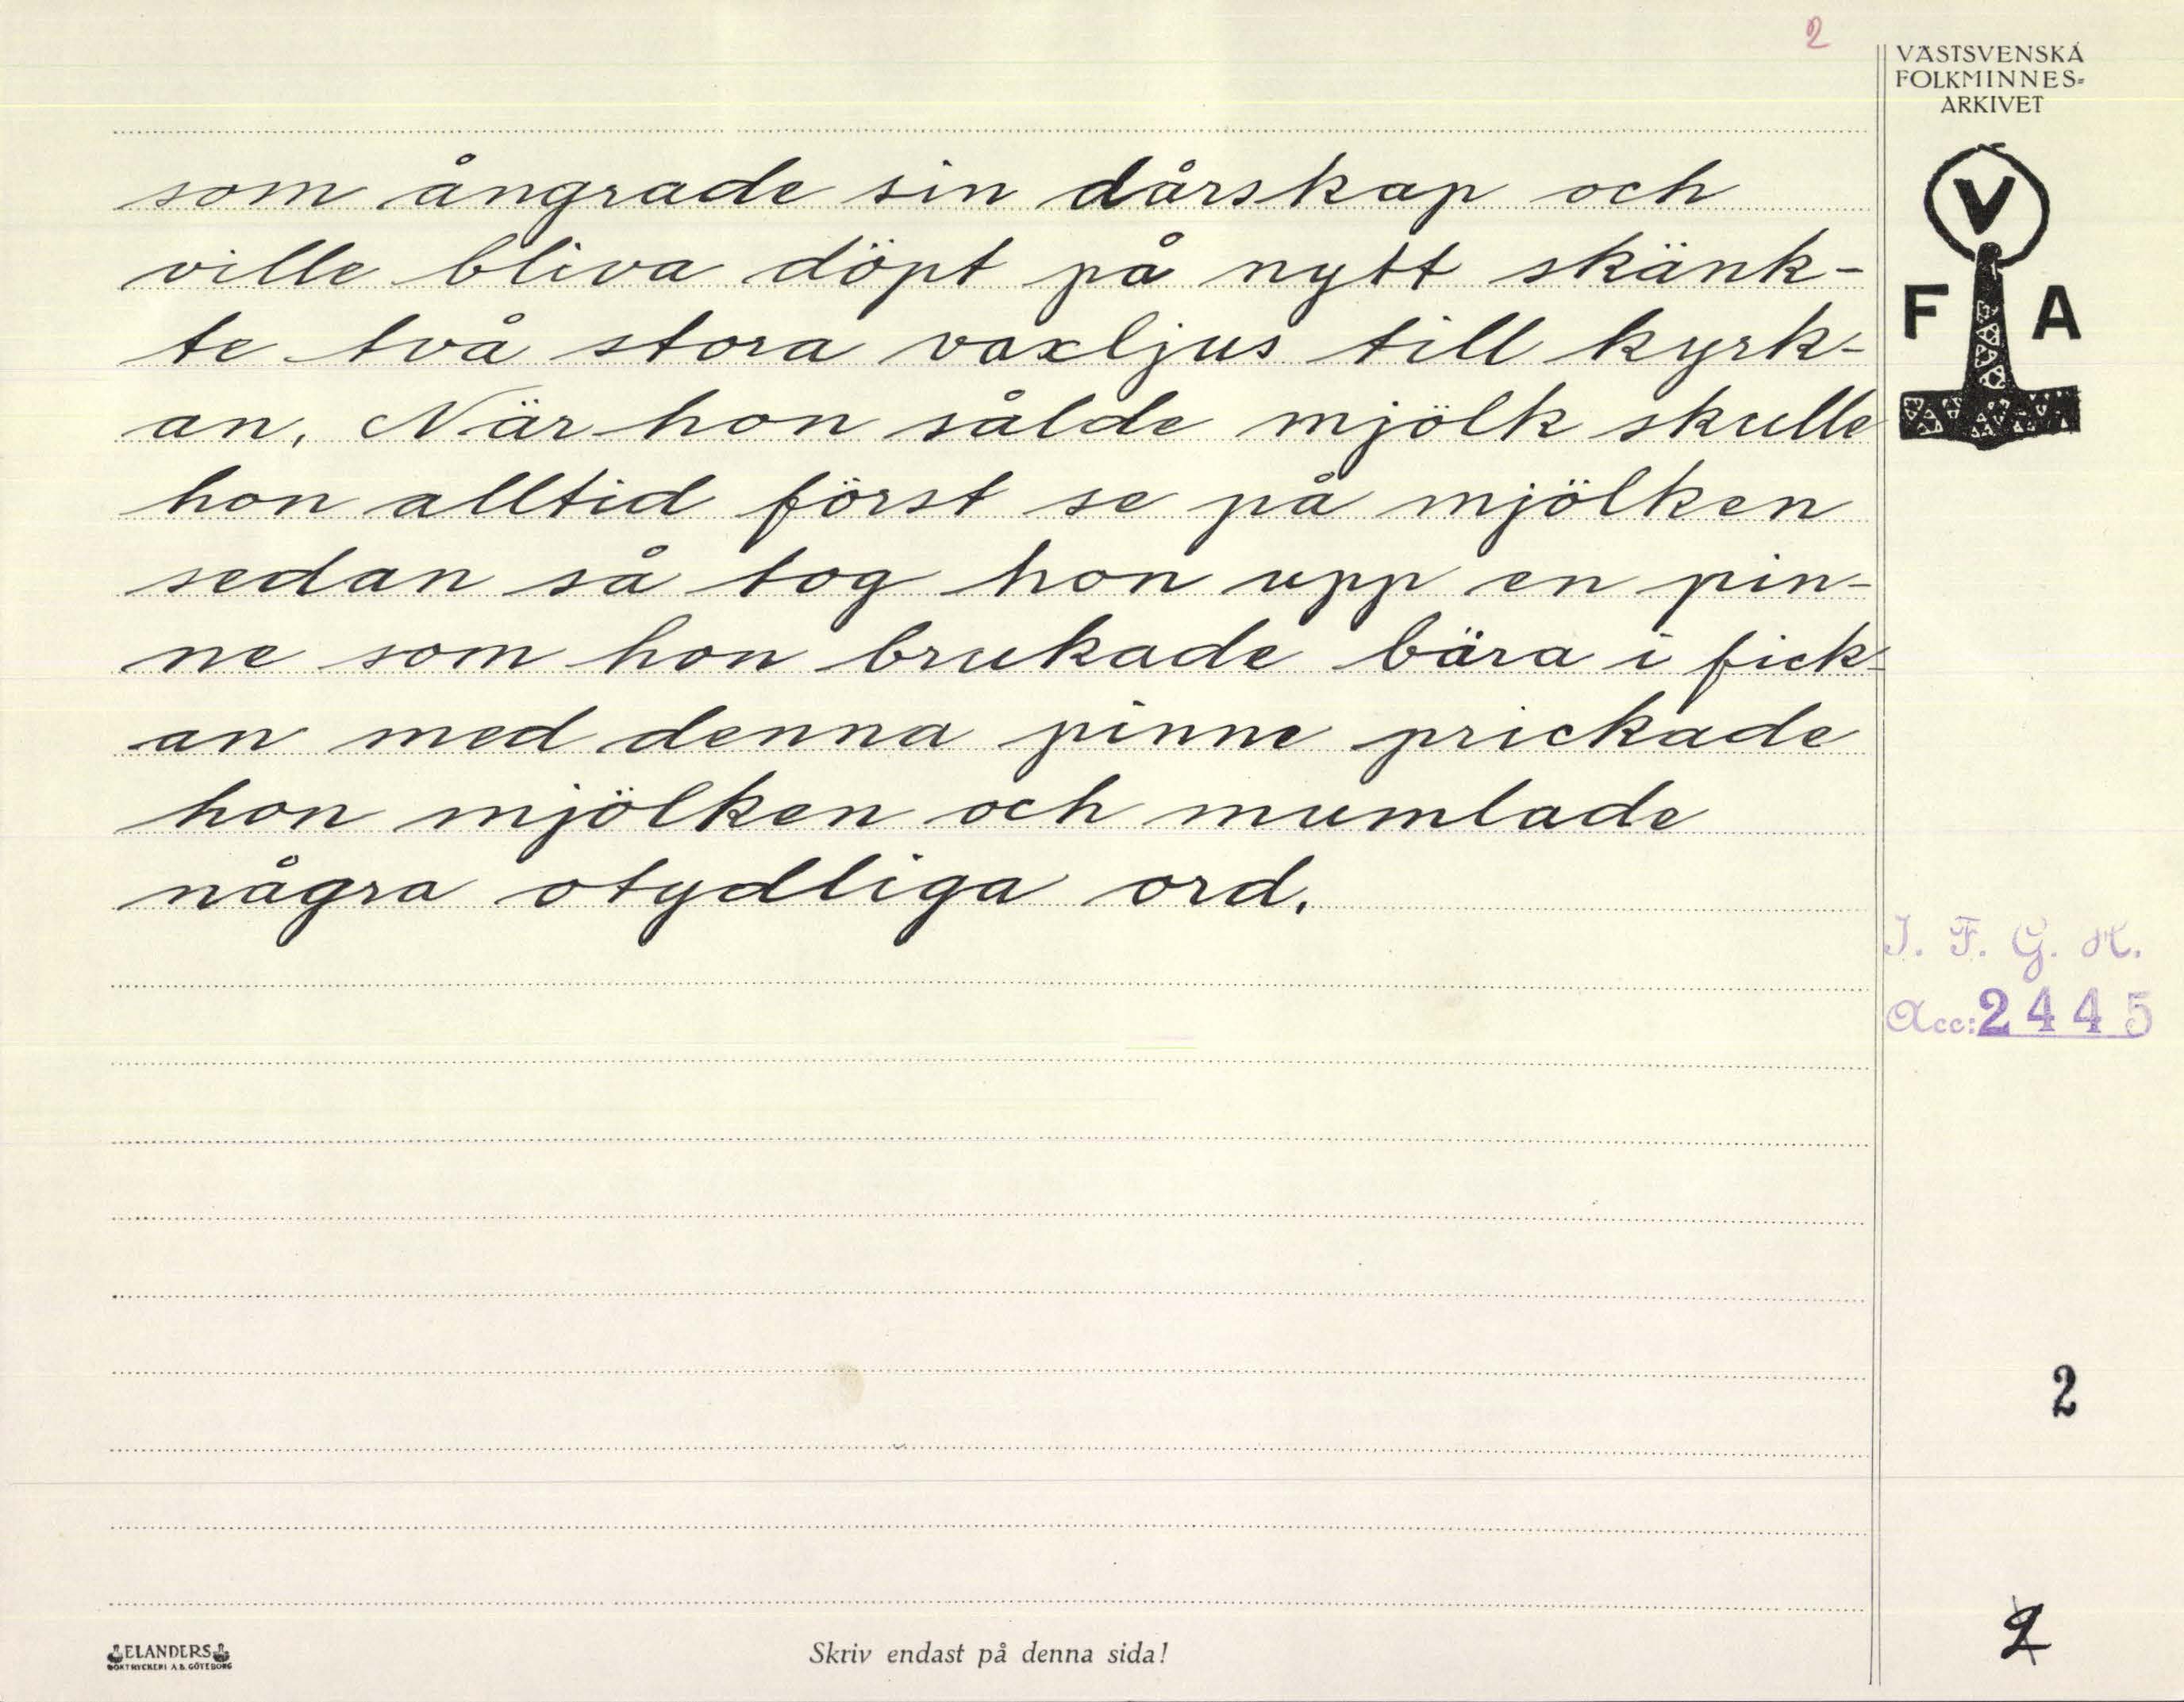 2
VÄSTSVENSKA
FOLKMINNES=
ARKIVET
V
F A
som ångrade sin dårskap och
ville bliva döpt på nytt skänk-
te två stora vaxljus till kyrk-
an. När hon sålde mjölk skulle
hon alltid först se på mjölken
sedan så tog hon upp en pin-
ne som hon brukade bära i fick-
an med denna pinne prickade
hon mjölken och mumlade
några otydliga ord.
I. F. G. H.
Acc: 2445
2
2
ELANDERS
BOKTRYCKERI A.B. GÖTEBORG
Skriv endast på denna sida!